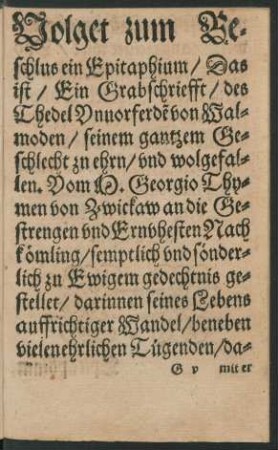 Volget zum Be-
schlus ein Epitaphium / Das
ist / Ein Grabschriefft / des
Thedel Vnuorferdẽ von Wal-
moden / seinem gantzem Ge-
schlecht zu ehrn / vnd wolgefal-
len. Vom M. Georgio Thy-
men von Zwickaw an die Ge-
strengen vnd Ernvhesten Nach
kömling / semptlich vnd sönder-
lich zu Ewigem gedechtnis ge-
stellet / darinnen seines Lebens
auffrichtiger Wandel / beneben
vielen ehrlichen Tügenden / da-
G v mit er